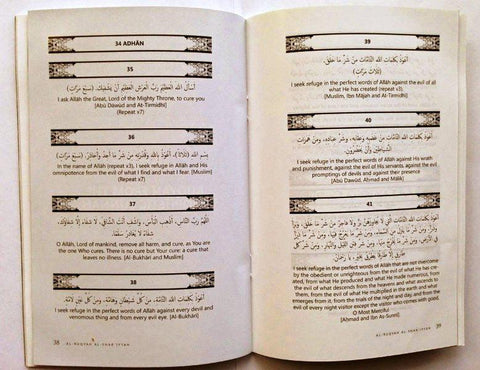 34 ADHĀN
35
أَسْأَلُ اللهَ الْعَظِيمَ رَبَّ الْعَرْشِ الْعَظِيمِ أَنْ يَشْفِيَكَ. (سَبْعَ مَرَّاتٍ)
I ask Allāh the Great, Lord of the Mighty Throne, to cure you
[Abū Dāwūd and At-Tirmidhī]
(Repeat x7)
36
بِسْمِ اللهِ (ثَلَاثًا)، أَعُوذُ بِاللهِ وَقُدْرَتِهِ مِنْ شَرِّ مَا أَجِدُ وَأُحَاذِرُ. (سَبْعَ مَرَّاتٍ)
In the name of Allāh (repeat x3), I seek refuge in Allāh and His
omnipotence from the evil of what I find and what I fear. [Muslim]
(Repeat x7)
37
اللَّهُمَّ رَبَّ النَّاسِ، أَذْهِبِ الْبَأْسَ، وَاشْفِ أَنْتَ الشَّافِي، لَا شِفَاءَ إِلَّا شِفَاؤُكَ،
شِفَاءً لَا يُغَادِرُ سَقَمًا.
O Allāh, Lord of mankind, remove all harm, and cure, as You are
the one Who cures. There is no cure but Your cure: a cure that
leaves no illness. [Al-Bukhārī and Muslim]
38
أَعُوذُ بِكَلِمَاتِ اللهِ التَّامَّةِ، مِنْ كُلِّ شَيْطَانٍ وَهَامَّةٍ، وَمِنْ كُلِّ عَيْنٍ لَامَّةٍ.
I seek refuge in the perfect words of Allāh against every devil and
venomous thing and from every evil eye. [Al-Bukhārī]
38
AL-RUQYAH AL-SHAR'IYYAH
39
أَعُوذُ بِكَلِمَاتِ اللهِ التَّامَّاتِ مِنْ شَرِّ مَا خَلَقَ.
(ثَلَاثَ مَرَّاتٍ)
I seek refuge in the perfect words of Allāh against the evil of all
what He has created (repeat x3).
[Muslim, Ibn Mājah and At-Tirmidhī]
40
أَعُوذُ بِكَلِمَاتِ اللهِ التَّامَّاتِ مِنْ غَضَبِهِ وَعِقَابِهِ، وَشَرِّ عِبَادِهِ، وَمِنْ هَمَزَاتِ
الشَّيَاطِينِ وَأَنْ يَحْضُرُونِ.
I seek refuge in the perfect words of Allāh against His wrath
and punishment, against the evil of His servants, against the evil
promptings of devils and against their presence
[Abū Dāwūd, Aḥmad and Mālik]
41
أَعُوذُ بِكَلِمَاتِ اللهِ التَّامَّاتِ الَّتِي لَا يُجَاوِزُهُنَّ بَرٌّ وَلَا فَاجِرٌ مِنْ شَرِّ مَا
طَارِقٍ إِلَّا طَارِقًا يَطْرُقُ بِخَيْرٍ، يَا رَحْمَانُ.
I seek refuge in the perfect words of Allāh that are not overcome
by the obedient or unrighteous from the evil of what He has cre-
ated, from what He produced and what He made numerous, from
the evil of what descends from the heaven and what ascends to
them, from the evil of what He multiplied in the earth and what
emerges from it, from the trials of the night and day, and from the
evil of every night visitor except the visitor who comes with good,
O Most Merciful
[Ahmad and Ibn As-Sunnī].
AL-RUQYAH AL-SHAR'IYYAH
39